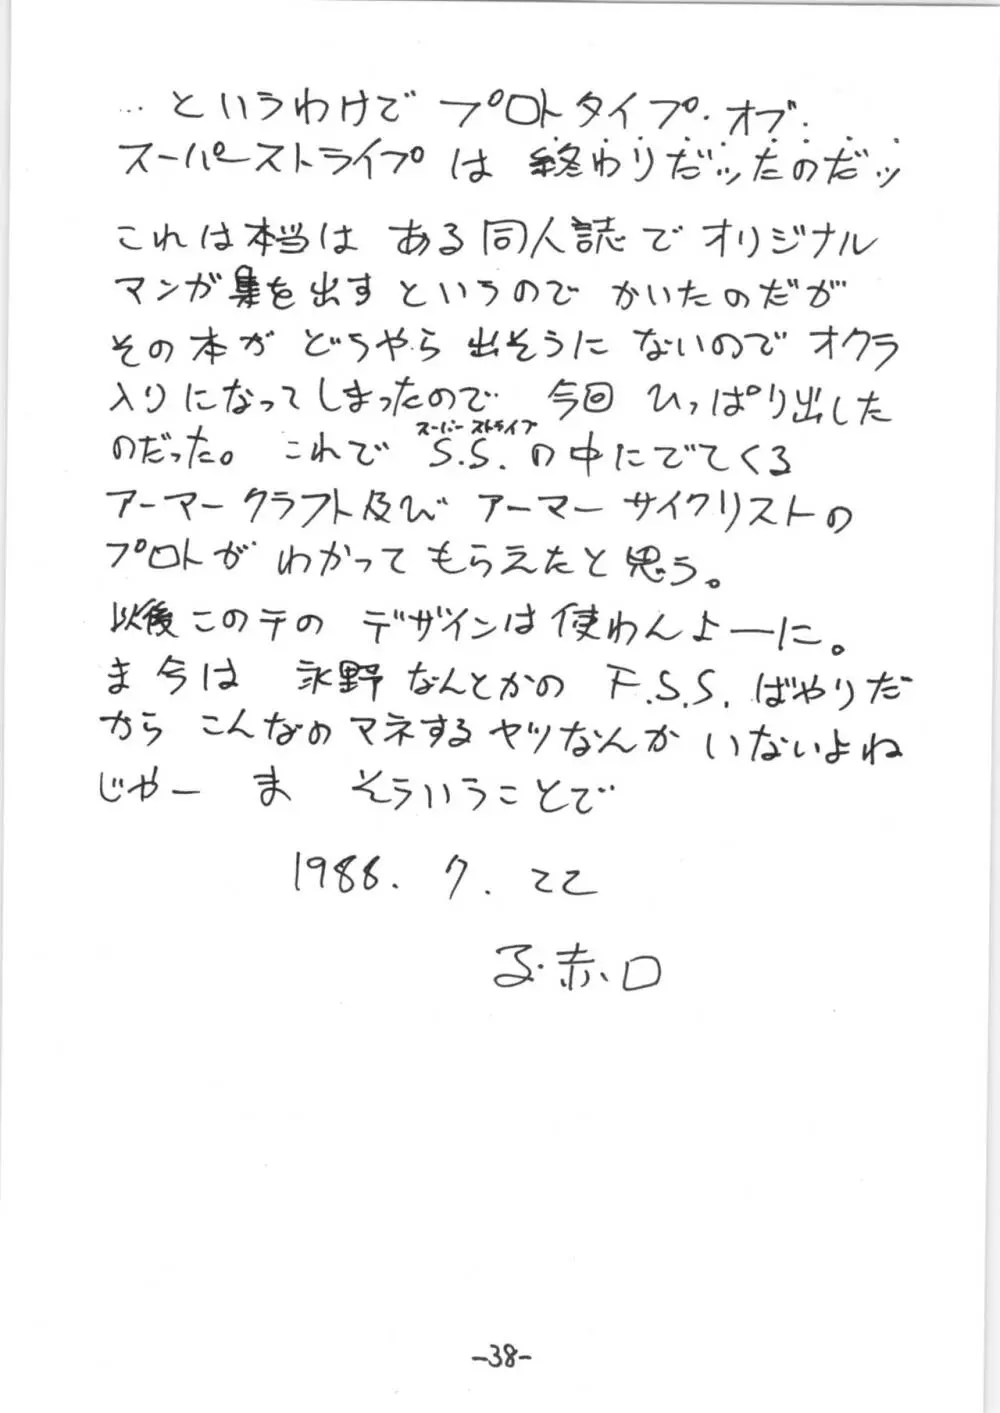 …というわけで プロトタイプ・オブ・
スーパーストライプは 終わりだッたのだッ
これは本当は ある同人誌でオリジナル
マンガ集を出すというので かいたのだが
その本が どうやら出そうにないのでオクラ
入りになってしまったので 今回 ひっぱり出した
スーパーストライプ
のだった。 これで S.S.の中にでてくる
アーマークラフト及び アーマーサイクリストの
プロトが わかってもらえたと思う。
以後このテの デザインは使わんよーに。
ま今は 永野なんとかの F.S.S.ばやりだ
から こんなのマネするヤツなんか いないよね
じゃー ま そういうことで
1988. 7. 22
る・赤、口
-38-